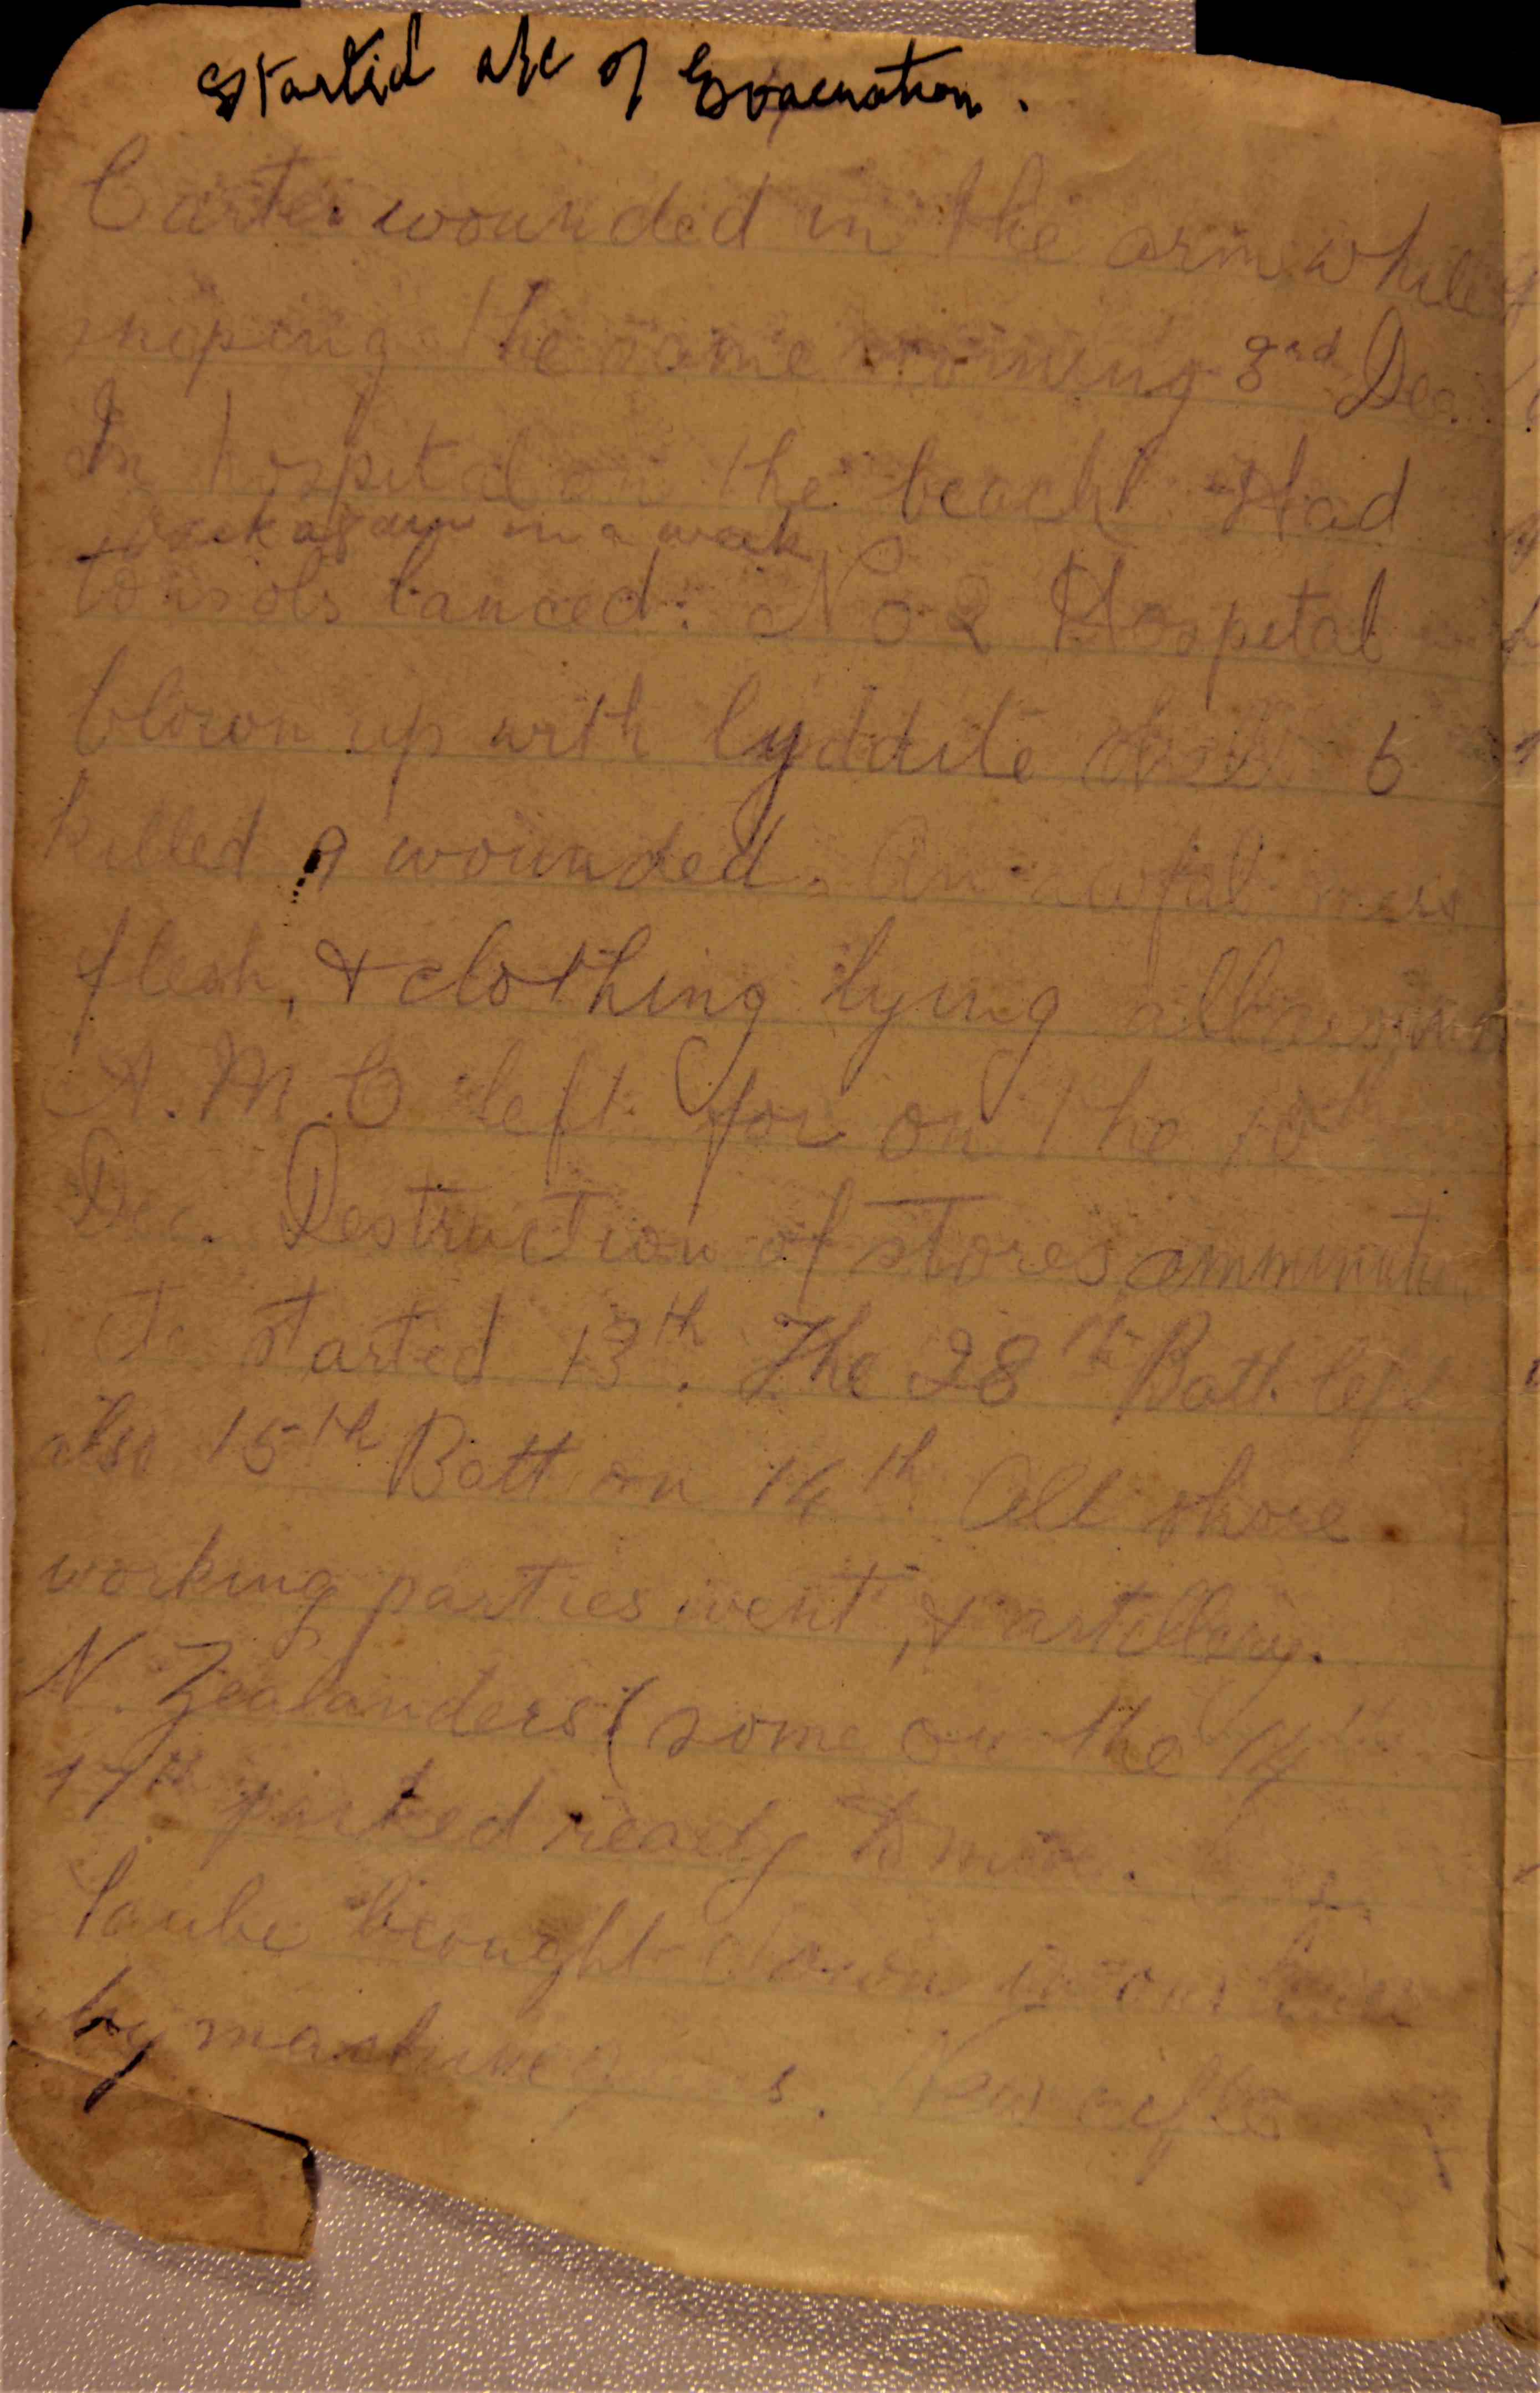 Started a/c of Evacuation.
Carter wounded in the arm while
sniping the same morning 3rd Dec.
In hospital on the beach Had
back again in a week
tonsols lanced. No 2 Hospital
blown up with lyddite shell 6
killed 9 wounded. An awful mess
flesh, & clothing lying all around
A.M.C left for on the 10th
Dec. Destruction of stores, ammunition
etc started 13th. The 28th Batt left
also 15th Batt on 14th All shore
working parties went, & artillery.
N. Zealanders (some on the 14th
17th packed ready to move.
Taube brought down in our lines
by machine guns. New rifles